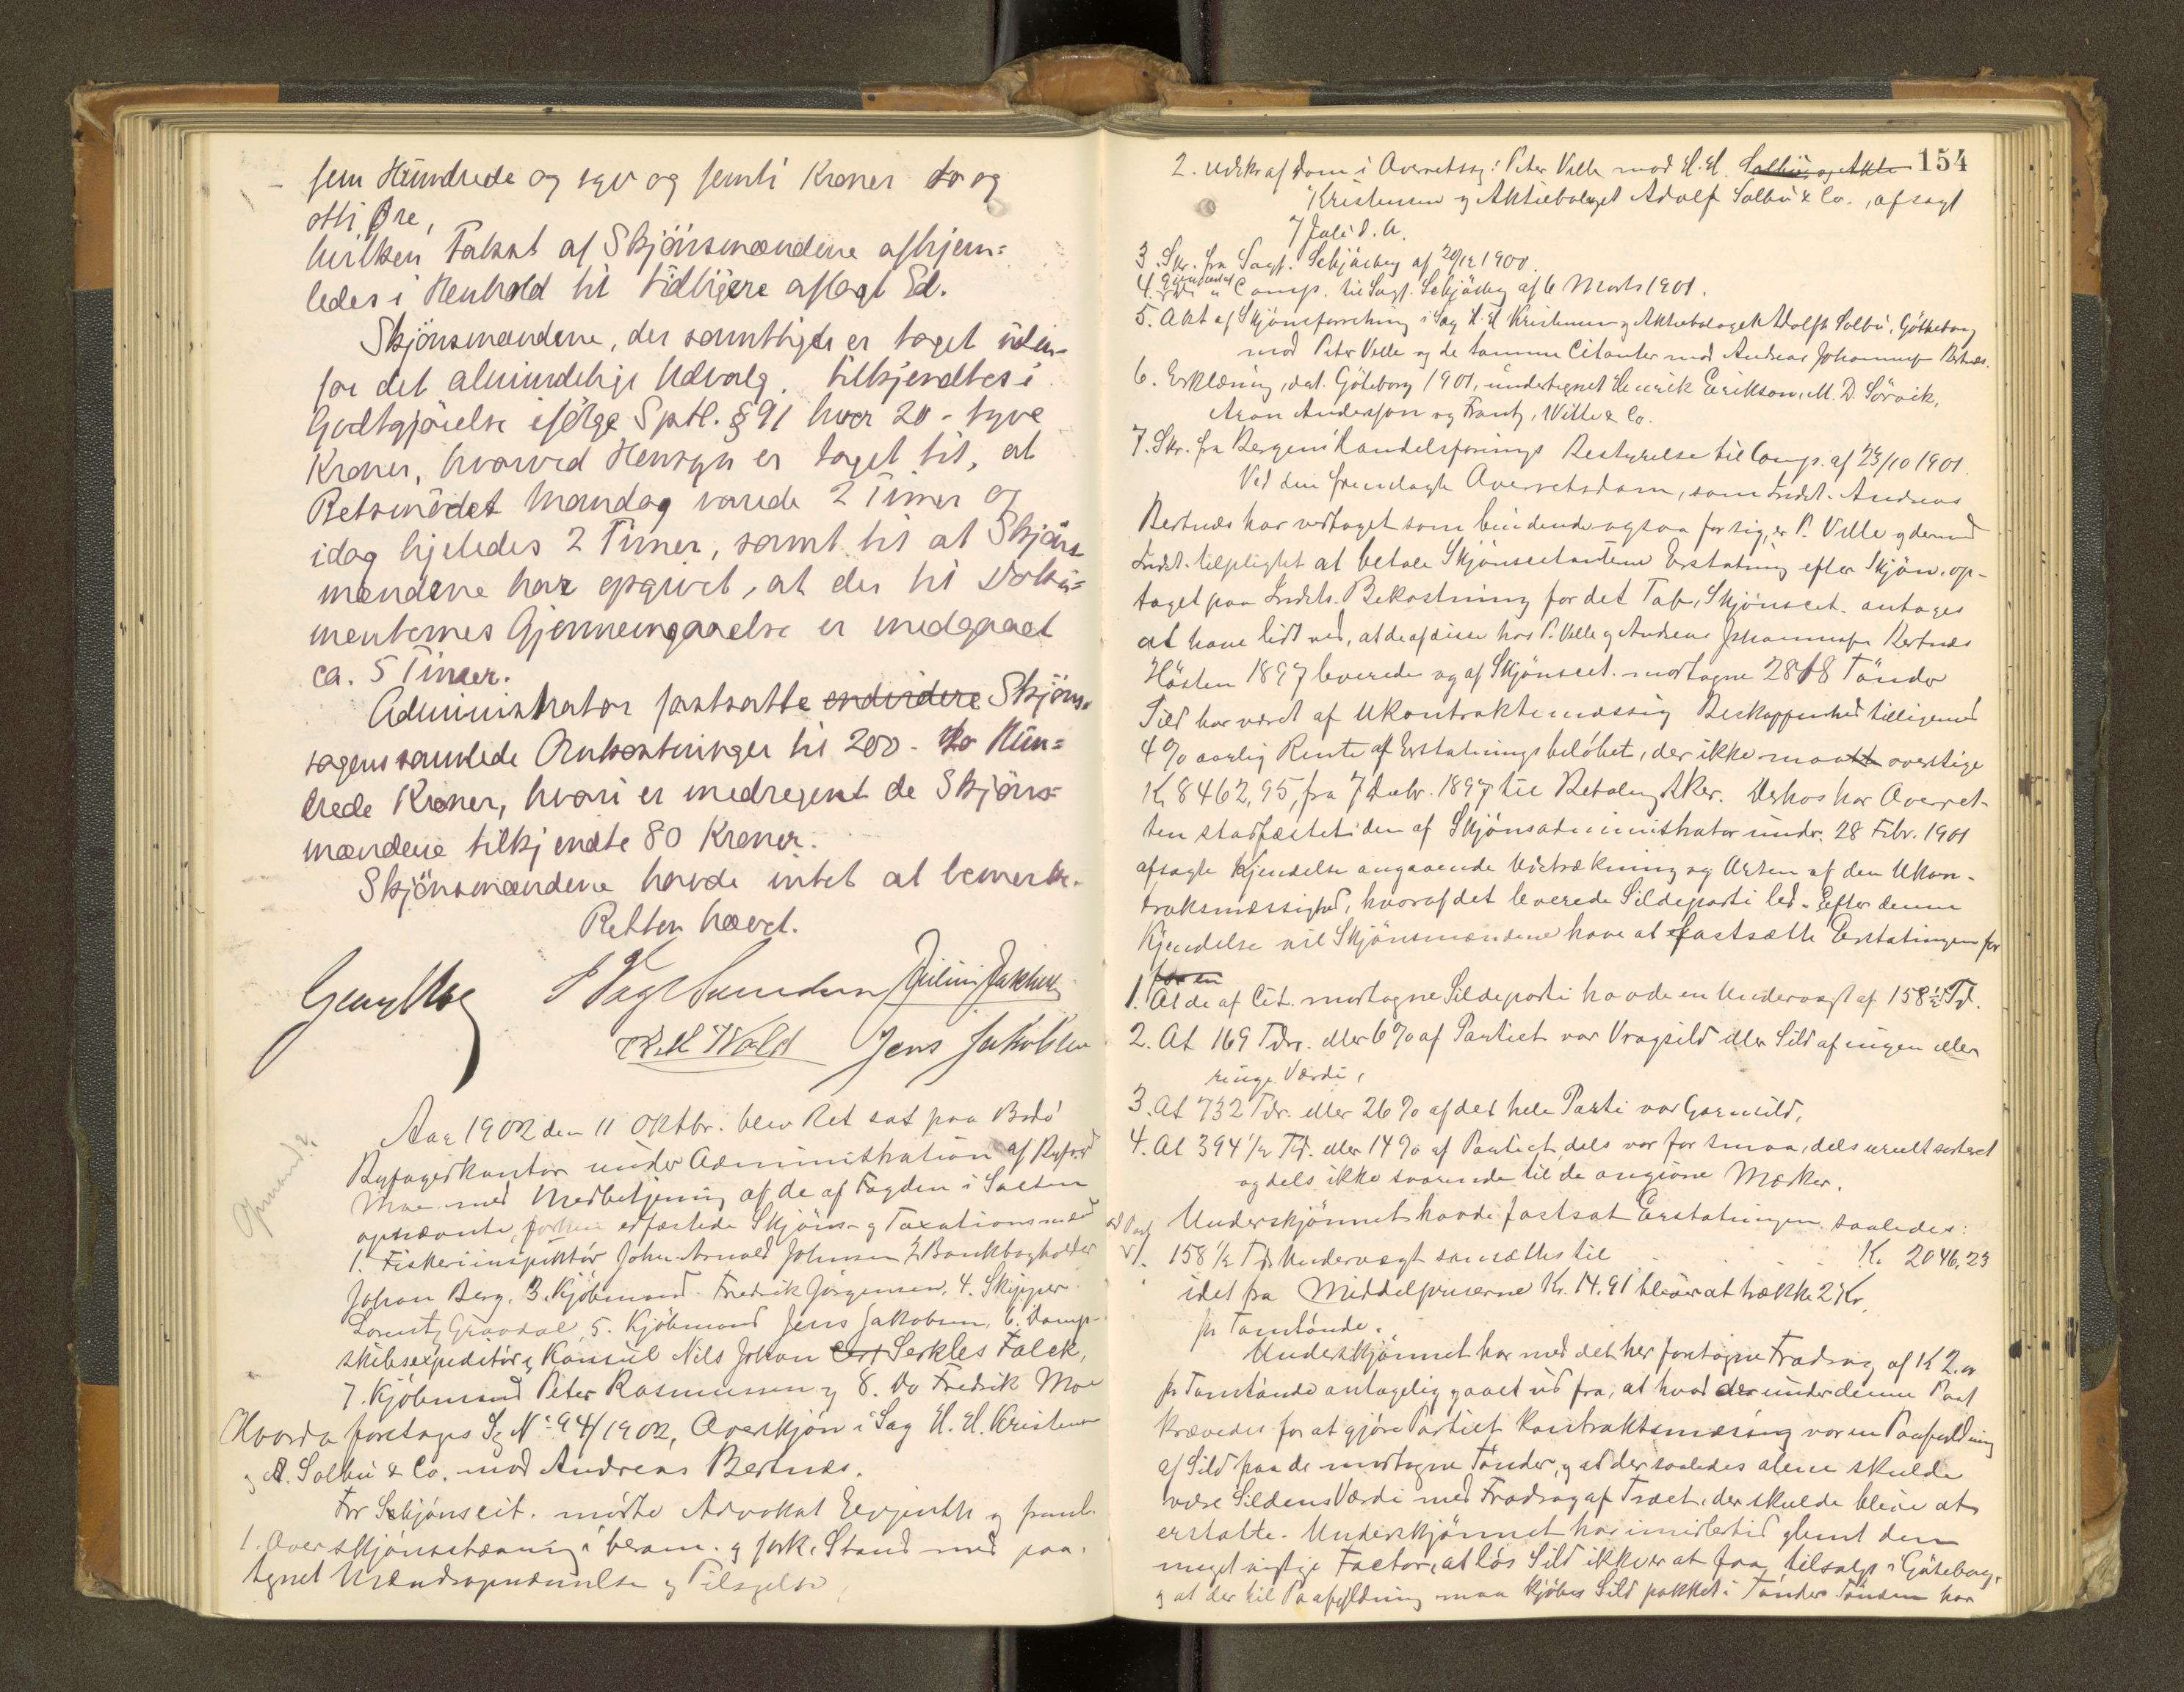 fem Hundrede og syv og femti Kroner to og
otti Øre,
hvilken Takst af Skjönsmændene afhjem-
ledes i Henhold til tidligere aflagt Ed.
Skjönsmændene, der samtlige er taget uden-
for det almindelige Udvalg, tilkjendtes i
Godtgjörelse ifølge Sptl. § 91 hver 20 - tyve
Kroner, hvorved Hensyn er taget til, at
Retsmödet Mandag varede 2 Timer og
idag ligeledes 2 Timer, samt til at Skjöns-
mændene har opgivet, at der til Doku-
menternes Gjennemgaaelse er medgaaet
ca. 5 Timer.
Administrator fastsatte endvidere Skjöns-
sagens samlede Omkostninger til 200 - to Hun-
drede Kroner, hvori er medregnet de Skjöns-
mændene tilkjendte 80 Kroner.
Skjönsmændene havde intet at bemerke.
Retten hævet.
Georg Moe
Jens Jakobsen
Aar 1902 den 11 Oktbr. blev Ret sat paa Bodö
Byfogedkontor under Administration af Byfoged
Moe med Medbetjening af de af Fogden i Salten
opnævnte, edfæstede Skjöns- og Taxationsmænd
1. Fiskeriinspektör John Arnold Johnsen 2. Bankbogholder
Johan Berg, 3. Kjöbmand Fredrik Jörgensen, 4. Skipper
Lorentz Graadal, 5. Kjöbmand Jens Jakobsen, 6. Damp-
skibsexpeditör og Konsul Nils Johan Serkles Falck,
7. Kjöbmand Peter Rasmussen og 8. Do Fredrik Moe
Hvorda foretages Sag No 94/1902, Overskjön i Sag H. H. Kristensen
og A. Solbu & Co. mod Andreas Bertnæs.
For Skjönscit. mödte Advokat og freml.
1. Overskjönsstævning i beram. og fork. Stand med paa-
tegnet Mændsopnævnelse og Tilsigelse
154
2. Udskr af Dom i Overretssag: Peter Velle mod H. H. Solbu og Akti
Kristensen og Aktiebolaget Adolf Solbu & Co., afsagt
7 Juli d. A.
3. Skr. fra Sagf. Schjösberg af 20/12 1900.
4. Gjenpart af Do " Comp. til Sagf. Schjösberg af 6 Marts 1901.
5. Akt af Skjönsforretning i Sag H. H. Kristensen og Aktiebolaget Adolf Solbu, Götheborg
mod Peter Velle og de samme Citanter mod Andreas Johannesen Bertnæs.
6. Erklæring, dat. Göteborg 1901, undertegnet Henrik Erikson, M. D. Sörvik,
Aron Andersson og Frantz, Witte & Co.
7. Skr. fra Bergens Handelsforenings Bestyrelse til Comp. af 23/10 1901.
Ved den fremlagte Overretsdom, som Indst. Andreas
Bertnæs har vedtaget som bindende ogsaa for sig, er P. Velle og dermed
Indst. tilpligtet at betale Skjönscitanterne Erstatning efter Skjön, op-
taget paa Indsts. Bekostning for det Tab, Skjönscit. antages
at have lidt ved, at de af disse hos P. Velle og Andreas Johannesen Bertnæs
Hösten 1897 leverede og af Skjönscit. modtagne 2818 Tönder
Sild har været af ukontraktsmæssig Beskaffenhed tilligemed
4 % aarlig Rente af Erstatningsbelöbet, der ikke maatte overstige
Kr. 8462,95, fra 7 Debr. 1897 til Betaling sker. Derhos har Overret-
ten stadfæstet den af Skjönsadministrator under 28 Febr. 1901
afsagte Kjendelse angaaende Udstrækning og Arten af den Ukon-
traktsmæssighed, hvoraf det leverede Sildeparti led. Efter denne
Kjendelse vil Skjönsmændene have at fastsætte Erstatningen for
for en
1. At de af Cit. modtagne Sildeparti havde en Undervægt af 158 1/2 Td.
2. At 169 Tdr. eller 6 % af Partiet var Vragsild eller Sild af ingen eller
ringe Værdi,
3. At 732 Tdr. eller 26 % af det hele Parti var Garnsild,
4. At 394 1/2 Td. eller 14 % af Partiet dels var for smaa, dels ureelt sorteret
og dels ikke svarende til de angivne Mærker.
Underskjönnet havde fastsat Erstatningen saaledes:
ad Post
1. 158 1/2 Tdr Undervægt ansættes til Kr. 2046,23
idet fra Middelpriserne Kr. 14.91 bliver at trække 2 Kr.
pr Tomtönde.
Underskjönnet har med det her foretagne Fradrag af Kr 2.00
pr Tomtönde antagelig gaaet ud fra, at hvad der under denne Post
krævedes for at gjöre Partiet kontraktsmæssig var en Paafyldning
af Sild paa de modtagne Tönder, og at der saaledes alene skulde
være Sildens Værdi med Fradrag af Træet, der skulde blive at
erstatte. Underskjönnet har imidlertid glemt den
meget vigtige Factor, at lös Sild ikke er at faa tilsalgs i Göteborg,
og at der til Paafyldning maa kjöbes Sild pakket i Tönder. Tönden har